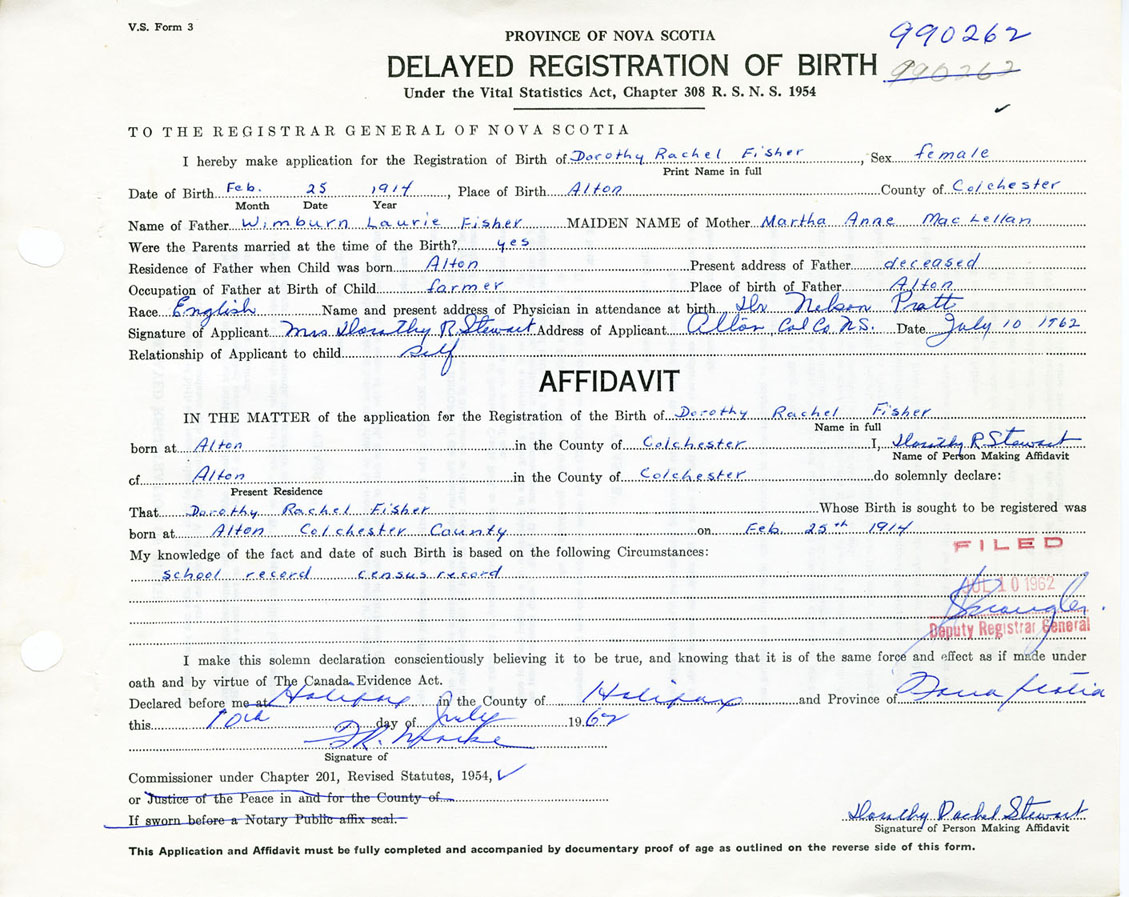 V.S. Form 3
990262
PROVINCE OF NOVA SCOTIA
DELAYED REGISTRATION OF BIRTH 990262
Under the Vital Statistics Act, Chapter 308 R. S. N. S. 1954
TO THE REGISTRAR GENERAL OF NOVA SCOTIA
I hereby make application for the Registration of Birth of Dorothy Rachel Fisher, Sex female
Print Name in full
Date of Birth Feb. 25 1914, Place of Birth Alton County of Colchester
Month Date Year
Name of Father Wimburn Laurie Fisher MAIDEN NAME of Mother Martha Anne MacLellan
Were the Parents married at the time of the Birth? yes
Residence of Father when Child was born Alton Present address of Father deceased
Occupation of Father at Birth of Child farmer Place of birth of Father Alton
Race English Name and present address of Physician in attendance at birth Dr Nelson Pratt
Signature of Applicant Mrs. Dorothy R. Stewart Address of Applicant Alton, Col. Co. N.S. Date July 10 1962
Relationship of Applicant to child self
AFFIDAVIT
IN THE MATTER of the application for the Registration of the Birth of Dorothy Rachel Fisher
Name in full
born at Alton in the County of Colchester I, Dorothy R. Stewart
Name of Person Making Affidavit
of Alton in the County of Colchester do solemnly declare:
Present Residence
That Dorothy Rachel Fisher Whose Birth is sought to be registered was
born at Alton Colchester County on Feb. 25th 1914
My knowledge of the fact and date of such Birth is based on the following Circumstances:
FILED
school record census record
JUL 10 1962
Deputy Registrar General
I make this solemn declaration conscientiously believing it to be true, and knowing that it is of the same force and effect as if made under
oath and by virtue of The Canada Evidence Act.
Declared before me at Halifax in the County of Halifax and Province of Nova Scotia
this 10th day of July 1962
Signature of
Commissioner under Chapter 201, Revised Statutes, 1954,
or Justice of the Peace in and for the County of
If sworn before a Notary Public affix seal.
Dorothy Rachel Stewart
Signature of Person Making Affidavit
This Application and Affidavit must be fully completed and accompanied by documentary proof of age as outlined on the reverse side of this form.